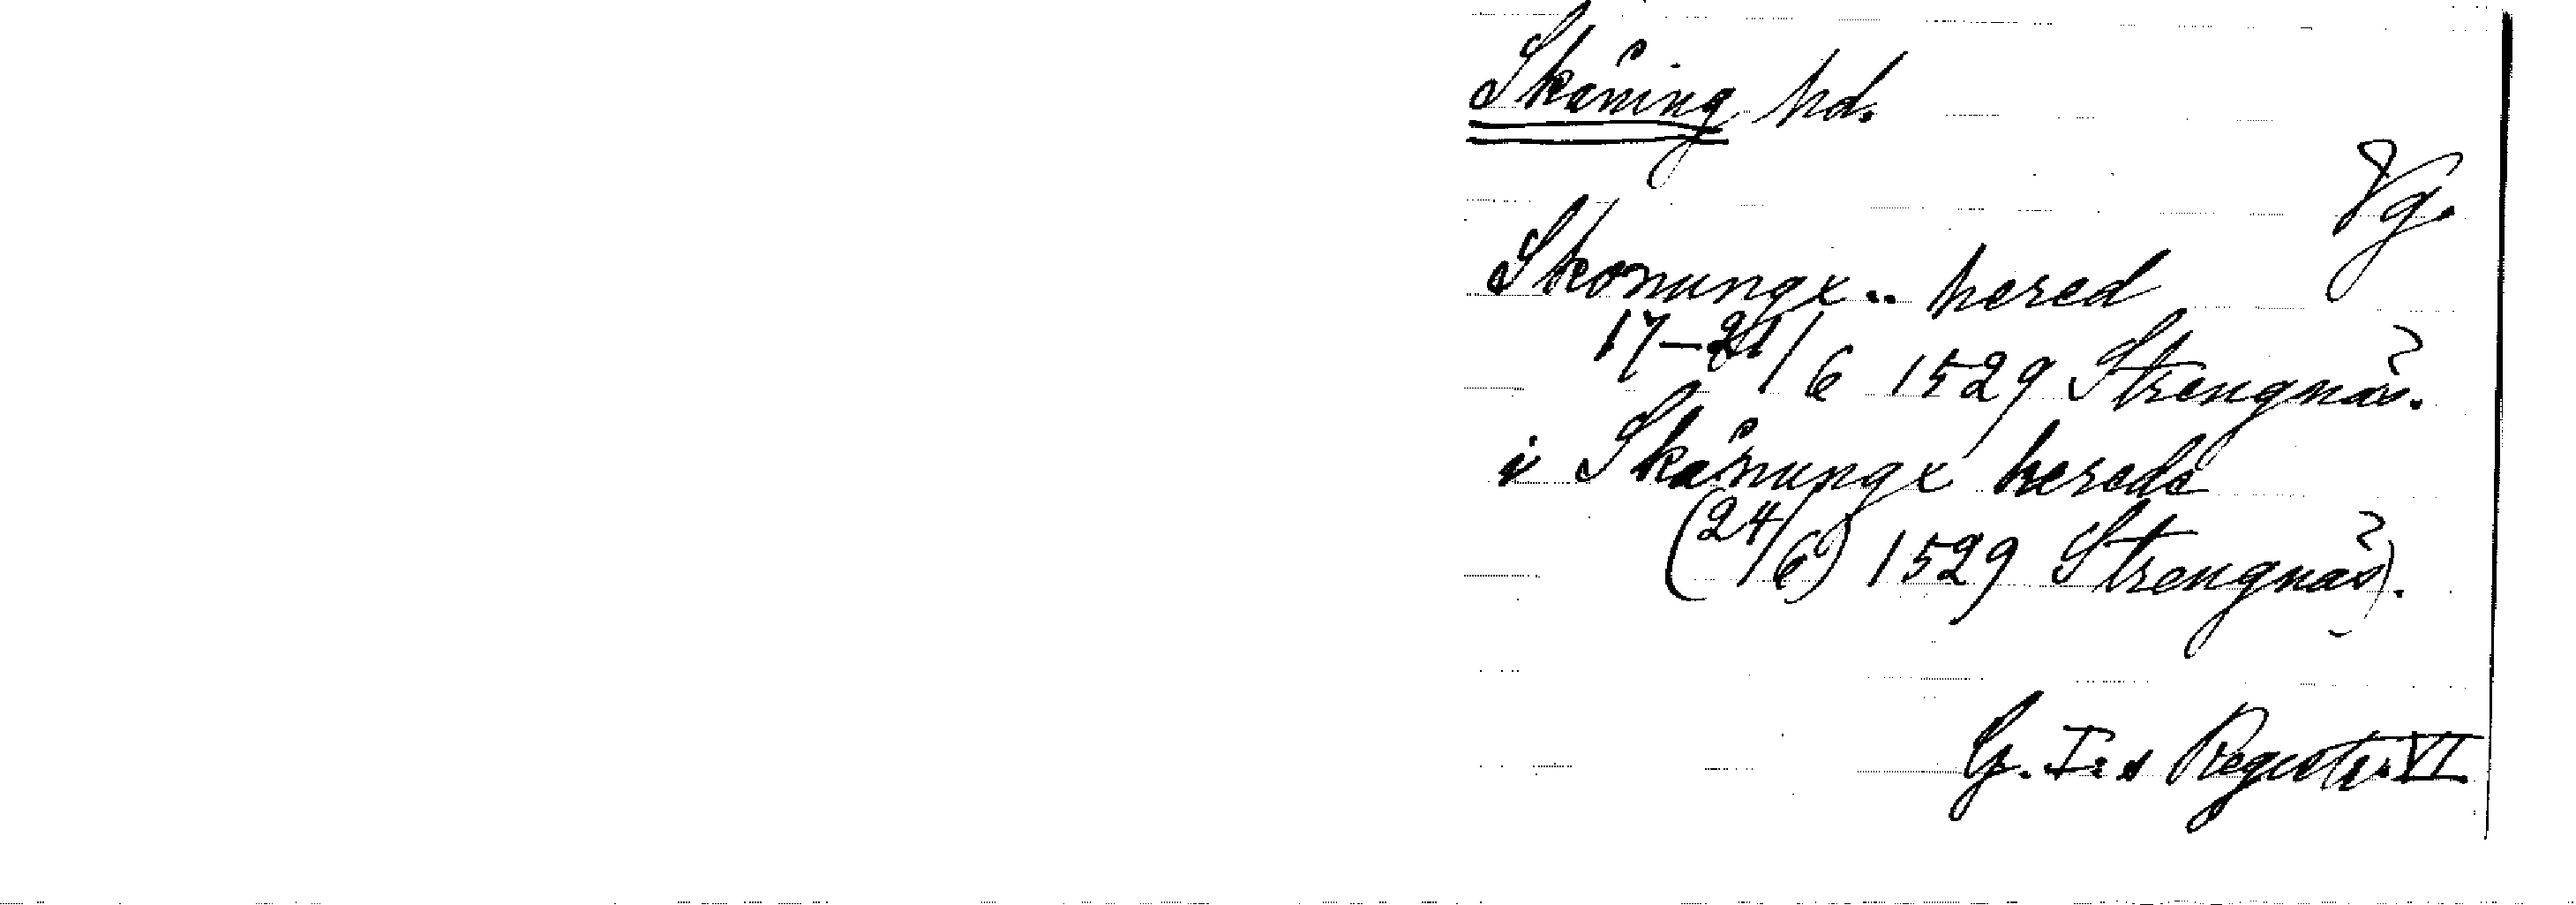 Skåning hd.
Vg.
Skonungx.. hered
17–21/6 1529 Strengnäs.
i Skånungx herede
(24/6) 1529 Strengnäs).
G. I:s Registr. VI